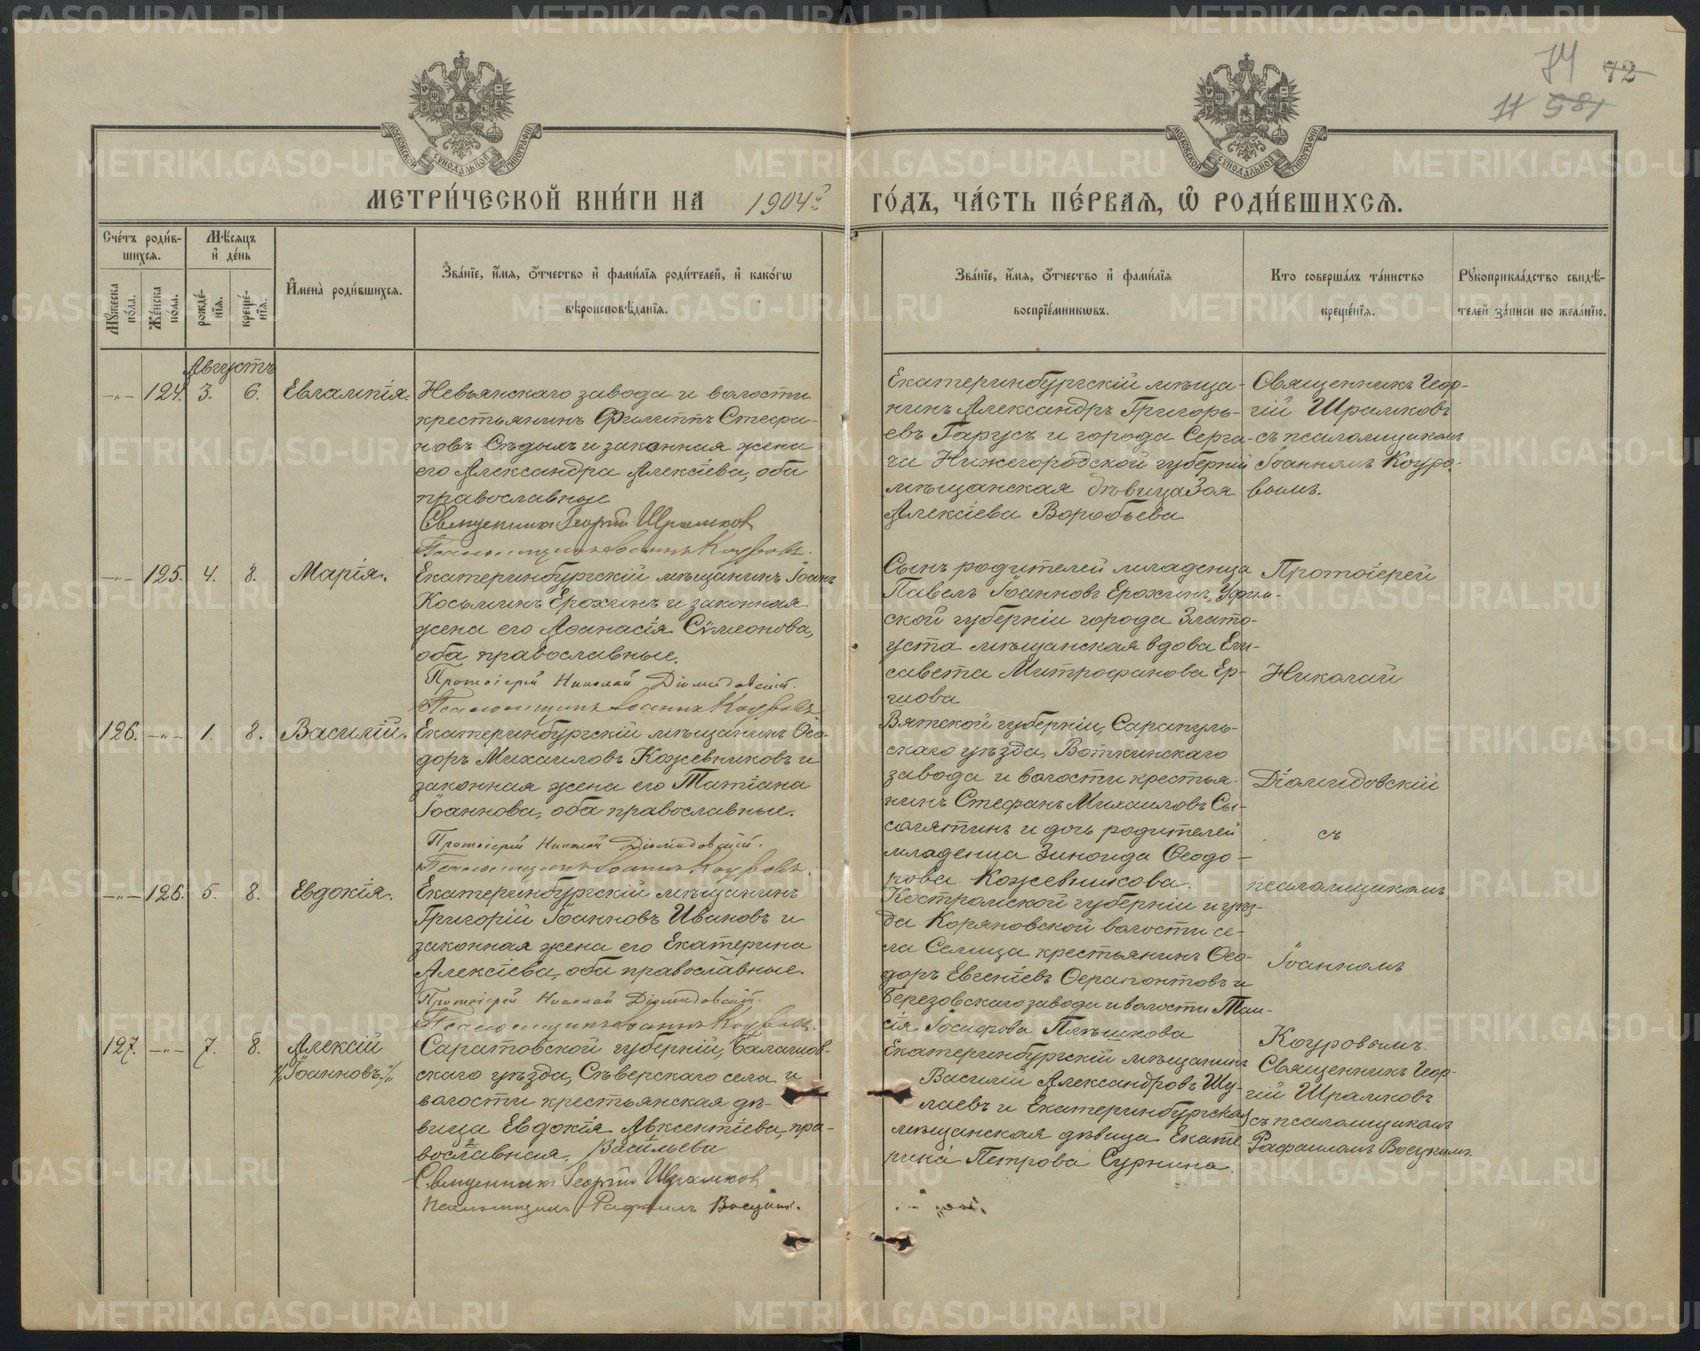 74 72
# 581
МЕТРИ́ЧЕСКОЙ КНИ́ГИ НА 1904й ГО́ДЪ, ЧА́СТЬ ПЕ́РВАЯ, Ѡ РОДИ́ВШИХСЯ.
Сче́тъ роди́в-
шихся.
Мꙋ́жеска по́ла.
Же́нска по́ла.
Мѣ́сяцъ
и҆ де́нь
рожде́-
нїя.
креще́-
нїя.
И҆мена̀ роди́вшихся.
Зва́нїе, и҆́мя, ѻ҆́тчество и҆ фами́лїя роди́телей, и҆ како́гѡ
вѣроисповѣ́данїя.
Зва́нїе, и҆́мя, ѻ҆́тчество и҆ фами́лїя
воспрїе́мникѡвъ.
Кто̀ соверша́лъ та́инство
креще́нїя.
Рꙋкоприкла́дство свидѣ́-
телей за́писи по жела́нїю.
Августъ
—„— 124. 3. 6. Евлампія.
Невьянскаго завода и волости
крестьянинъ Филиппъ Стефа-
новъ Сѣдыхъ и законная жена
его Александра Алексіева, оба
православные
Священникъ Георгій Шрамковъ
Псаломщикъ Іоаннъ Коуровъ.
Екатеринбургскій мѣща-
нинъ Александръ Григорь-
евъ Гарусъ и города Серга-
ча Нижегородской губерніи
мѣщанская дѣвица Зоя
Алексіева Воробьева
Священникъ Геор-
гій Шрамковъ
съ псаломщикомъ
Іоанномъ Коуро-
вымъ.
—„— 125. 4. 8. Марія.
Екатеринбургскій мѣщанинъ Іоаннъ
Косьминъ Ерохинъ и законная
жена его Аѳанасія Сѵмеонова,
оба православные.
Протоіерей Николай Діомидовскій.
Псаломщикъ Іоаннъ Коуровъ
Сынъ родителей младенца
Павелъ Іоанновъ Ерохинъ, Уфим-
ской губерніи города Злато-
уста мѣщанская вдова Ели-
савета Митрофанова Ер-
шова
Протоіерей
Николай
126. —„— 1. 8. Василій.
Екатеринбургскій мѣщанинъ Ѳео-
доръ Михаиловъ Кожевниковъ и
законная жена его Татіана
Іоаннова, оба православные.
Протоіерей Николай Діомидовскій.
Псаломщикъ Іоаннъ Коуровъ.
Вятской губерніи, Сарапуль-
скаго уѣзда, Воткинскаго
завода и волости крестья-
нинъ Стефанъ Михаиловъ Сы-
солятинъ и дочь родителей
младенца Зинаида Ѳеодо-
рова Кожевникова.
Діомидовскій
съ
псаломщикомъ
—„— 126. 5. 8. Евдокія.
Екатеринбургскій мѣщанинъ
Григорій Іоанновъ Ивановъ и
законная жена его Екатерина
Алексіева, оба православные.
Протоіерей Николай Діомидовскій.
Псаломщикъ Іоаннъ Коуровъ.
Костромской губерніи и уѣз-
да Коряковской волости се-
ла Селища крестьянинъ Ѳео-
доръ Евгеніевъ Ѳерапонтовъ и
Березовскаго завода и волости Таи-
сія Іосифова Плѣшкова
Іоанномъ
Коуровымъ.
127. —„— 7. 8. Алексій
„Іоанновъ“
Саратовской губерніи, Балашов-
скаго уѣзда, Сѣверскаго села и
волости крестьянская дѣ-
вица Евдокія Авксентіева, пра-
вославная. Васильева
Священникъ Георгій Шрамковъ
Псаломщикъ Рафаилъ
Екатеринбургскій мѣщанинъ
Василій Александровъ Шу-
лаевъ и Екатеринбургская
мѣщанская дѣвица Екате-
рина Петрова Сурнина.
Священникъ Геор-
гій Шрамковъ
съ псаломщикомъ
Рафаиломъ